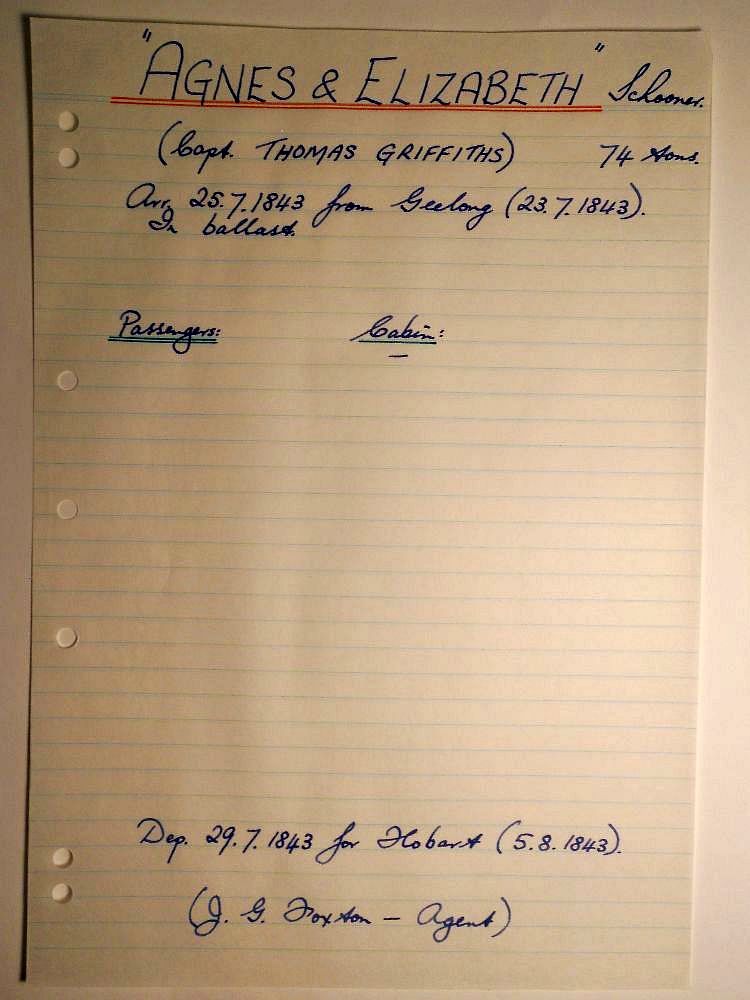 "AGNES & ELIZABETH" Schooner.
(Capt. THOMAS GRIFFITHS) 74 tons.
Arr. 25.7.1843 from Geelong (23.7.1843).
In ballast.
Passengers: Cabin:
—
Dep. 29.7.1843 for Hobart (5.8.1843).
(J. G. Foxton – Agent)